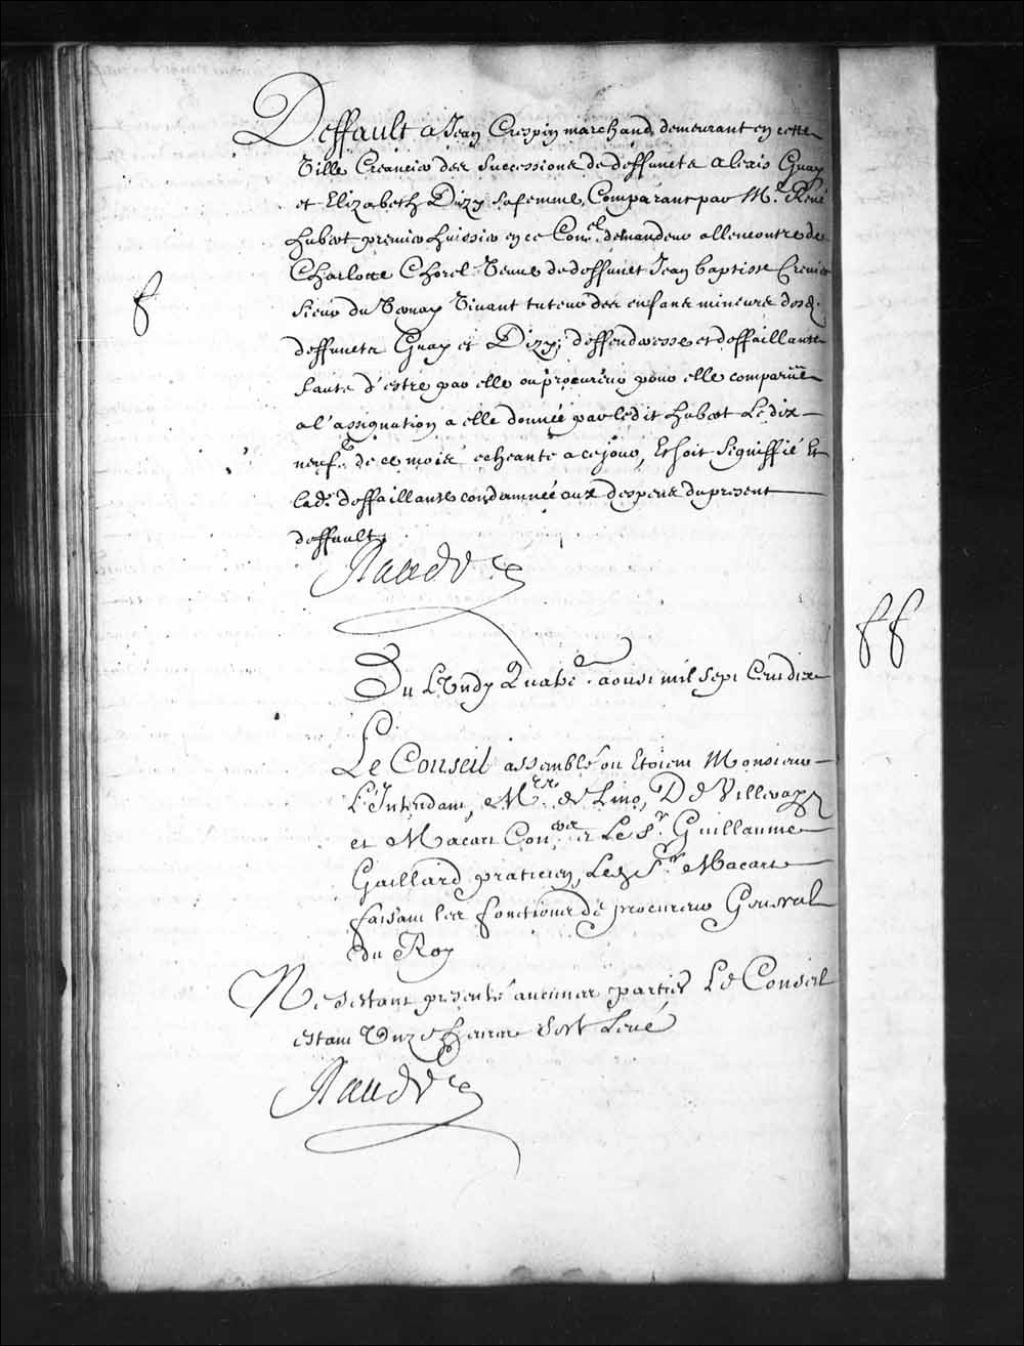 Deffault a Jean Crespin marchand demeurant en cette
Ville Creancier des successions de deffuncts alexis Guay
et Elizabeth Dizy sa femme, Comparant par Me. René
hubert premier huissier en ce Conel. demandeur allencontre de
Charlotte Chorel Veuve de deffunct Jean baptiste Crevier
sieur du Vernay Vivant tuteur des enfans mineurs desd.
deffuncts Guay et Dizy; deffenderesse et deffaillante
faute d'estre par elle ou procureur pour elle comparüe
a l'assignation a elle donnée par ledit hubert Le dix
neufe. de ce mois echeante a ce jour, Et soit signiffié Et
lad. deffaillante condamnée aux despens du present
deffault
Raudot
Du Lundy Quatre. aoust mil sept Cent dix
Le Conseil assemblé ou Etoient Monsieur
L'Intendant, Mrs. de Lino, De Villeray
et Macart Coners. et Le Sr. Guillaume
Gaillard praticien, Led. Sr. Macart
faisant les fonctions de procureur General
du Roy
Ne s'estant presenté aucunes parties Le Conseil
estant Unze heures s'est Levé
Raudot